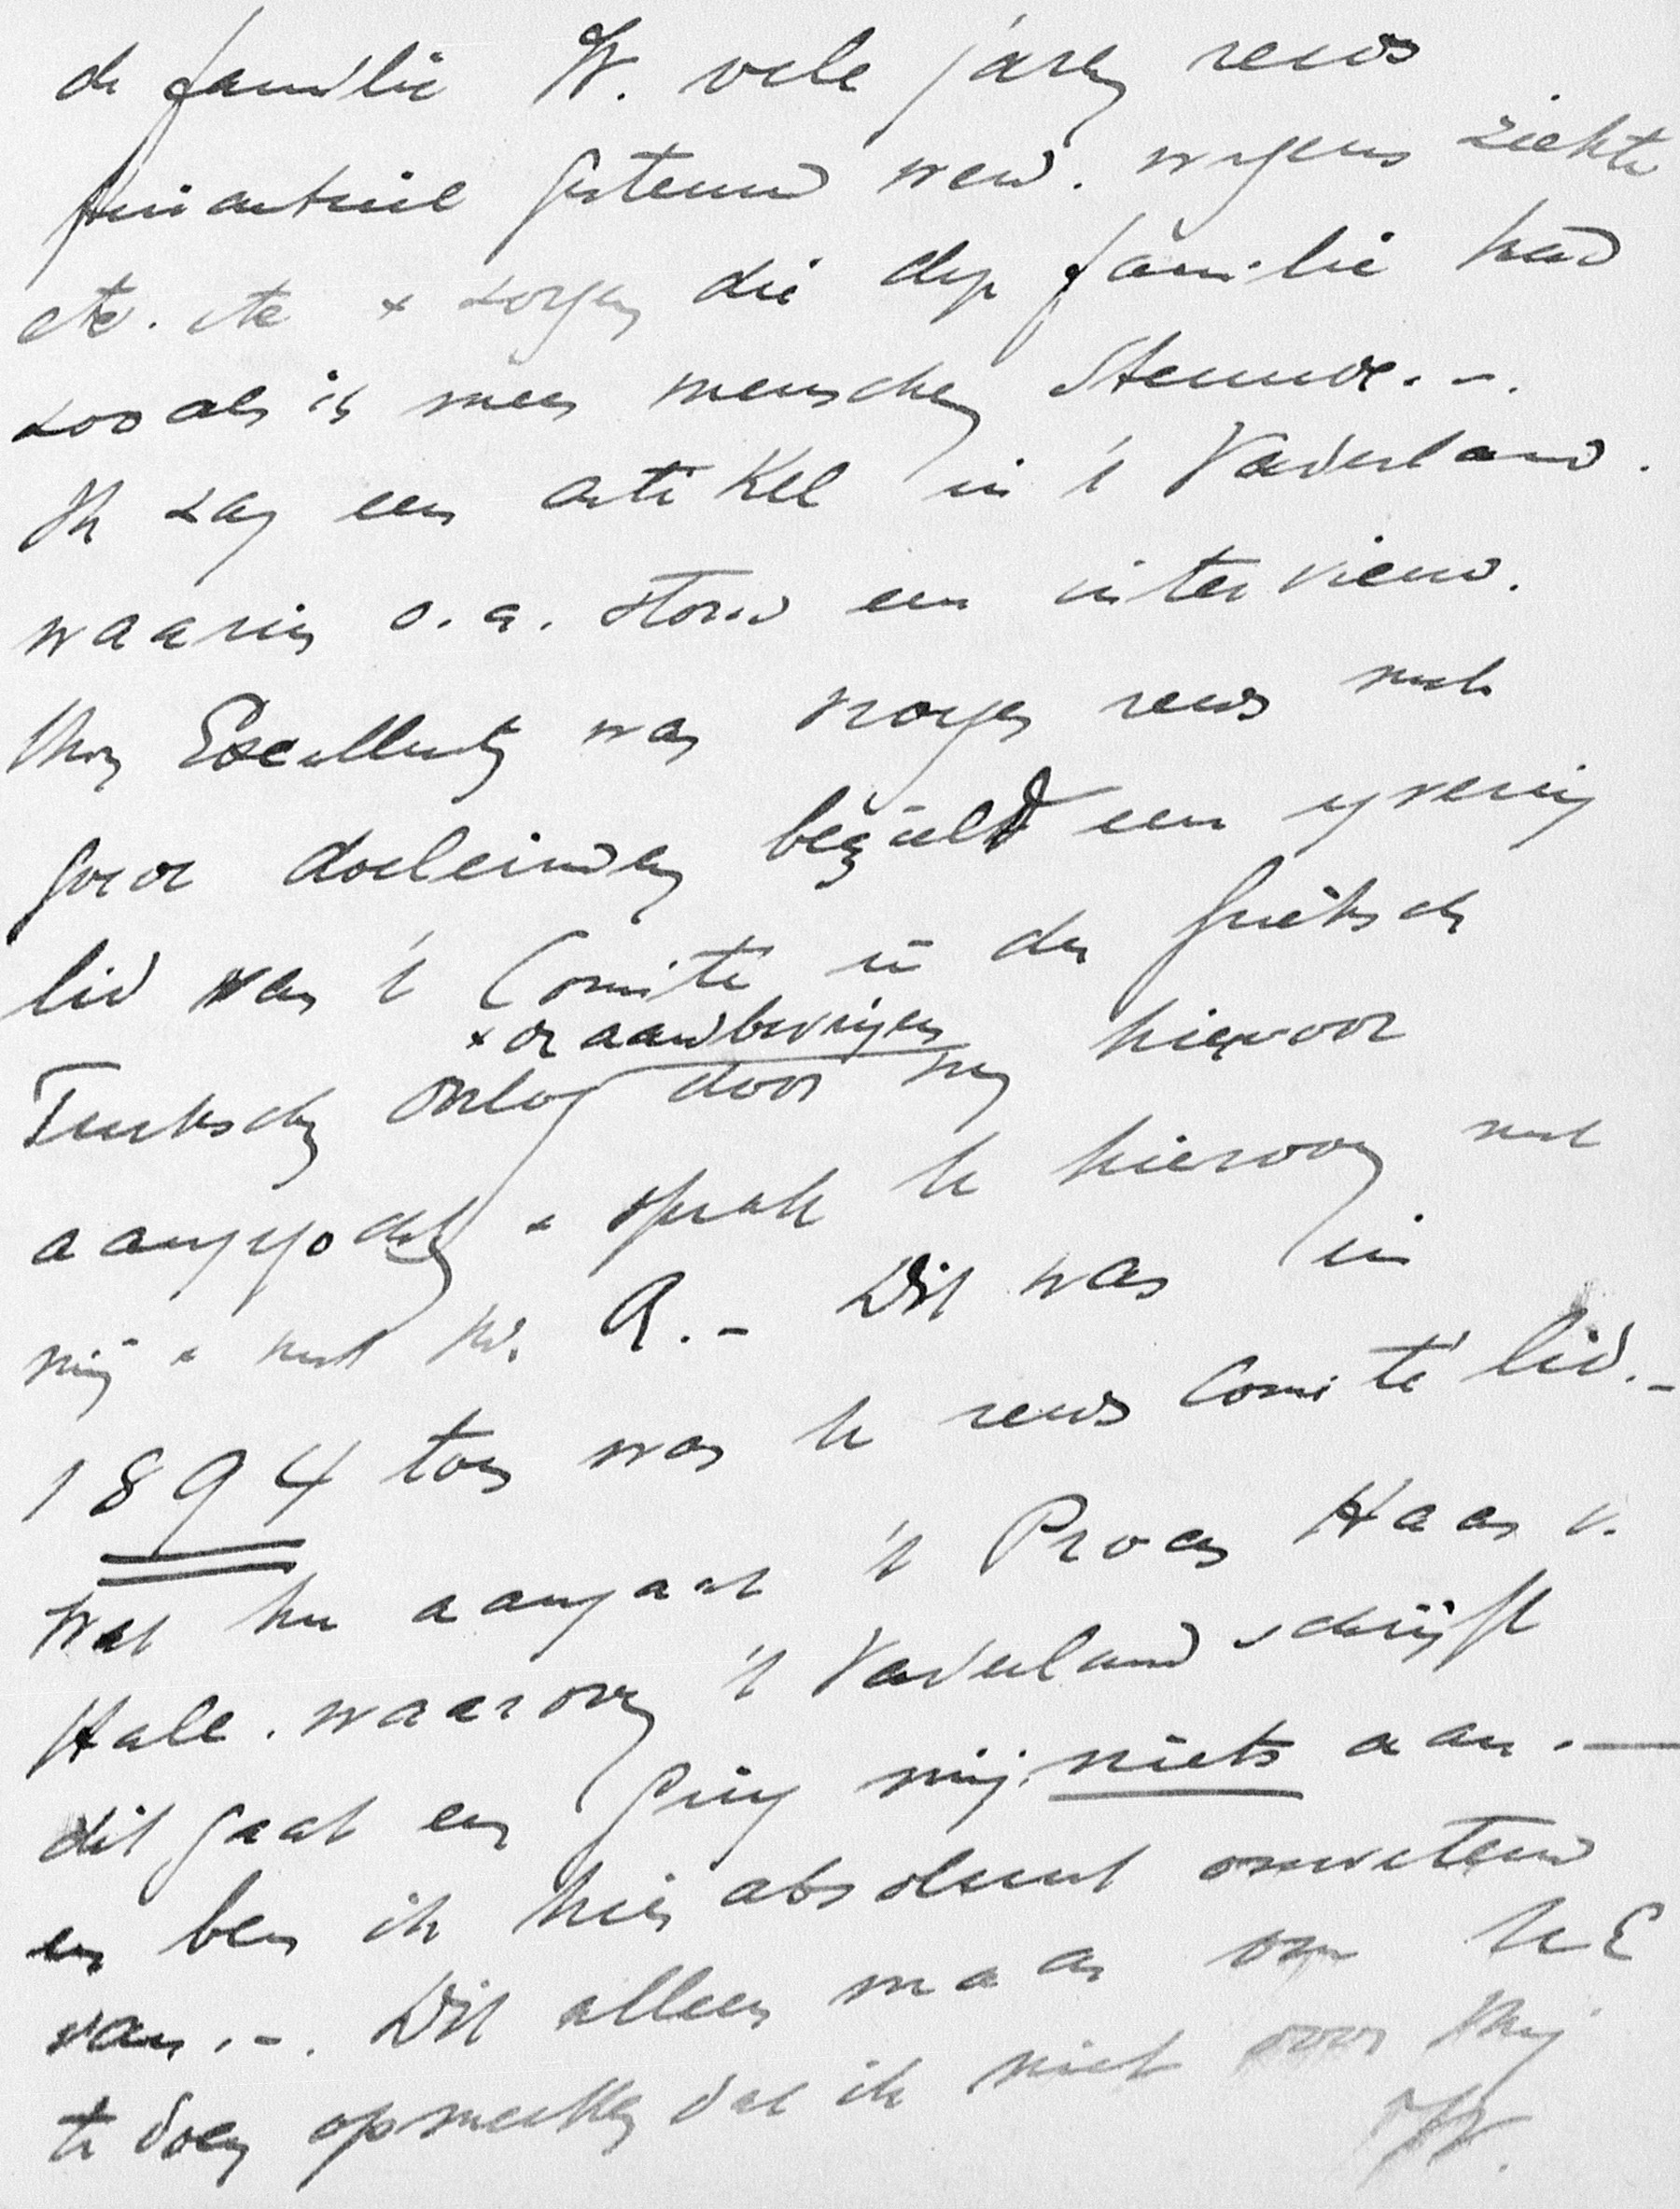 de familie W. vele jaren reeds
financieel gesteund werd. wegens ziekte
etc. etc & zorgen die deze familie had
zooals ik meer menschen steunde. -.
Ik zag een artikel in 't Vaderland.
waarin o.a. stond een interview.
Uwe Excellentie was vroeger reeds met
goede doeleinden bezield een ijverig
lid van 't Comité in den Grieksch
& de aandoeningen
Turkschen Oorlog door mij hiervoor
aangezocht & sprak U hierover met
mij & met Mr. A. - Dit was in
1894 toen was U reeds Comité lid. -
Wat nu aangaat 't Proces Haas v.
Hall. waarover 't Vaderland schrijft
dit gaat en ging mij niets aan. —
en ben ik hier absoluut onwetend
van. -. Dit alleen maar om U E
te doen opmerken dat ik niet over mij